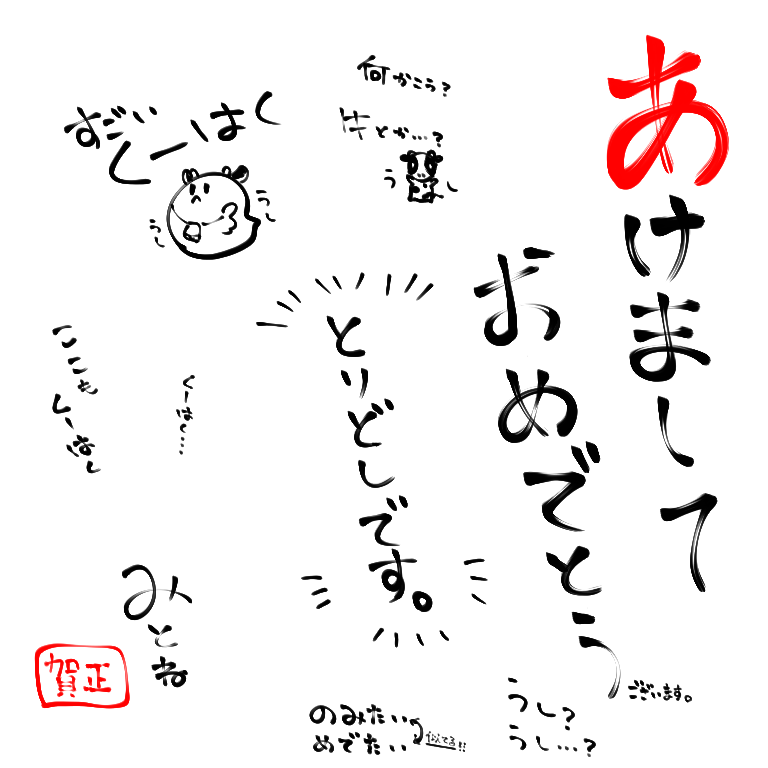 あけまして
おめでとう
ございます。
とりどしです。
何かこう?
牛とか…?
うし
すごい
くーはく
うし
うし
ここもくーはく
くーはく…
みとね
賀正
のみたい
めでたい
似てる!!
うし?
うし…?